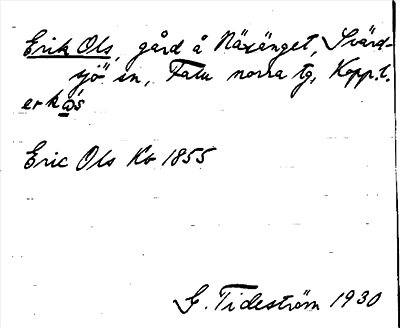 Erik Ols, gård å Näxänget, Svärd-
sjö sn, Falu norra tg, Kopp. l.
erk ås
Eric Ols Kb 1855
G. Tideström 1930